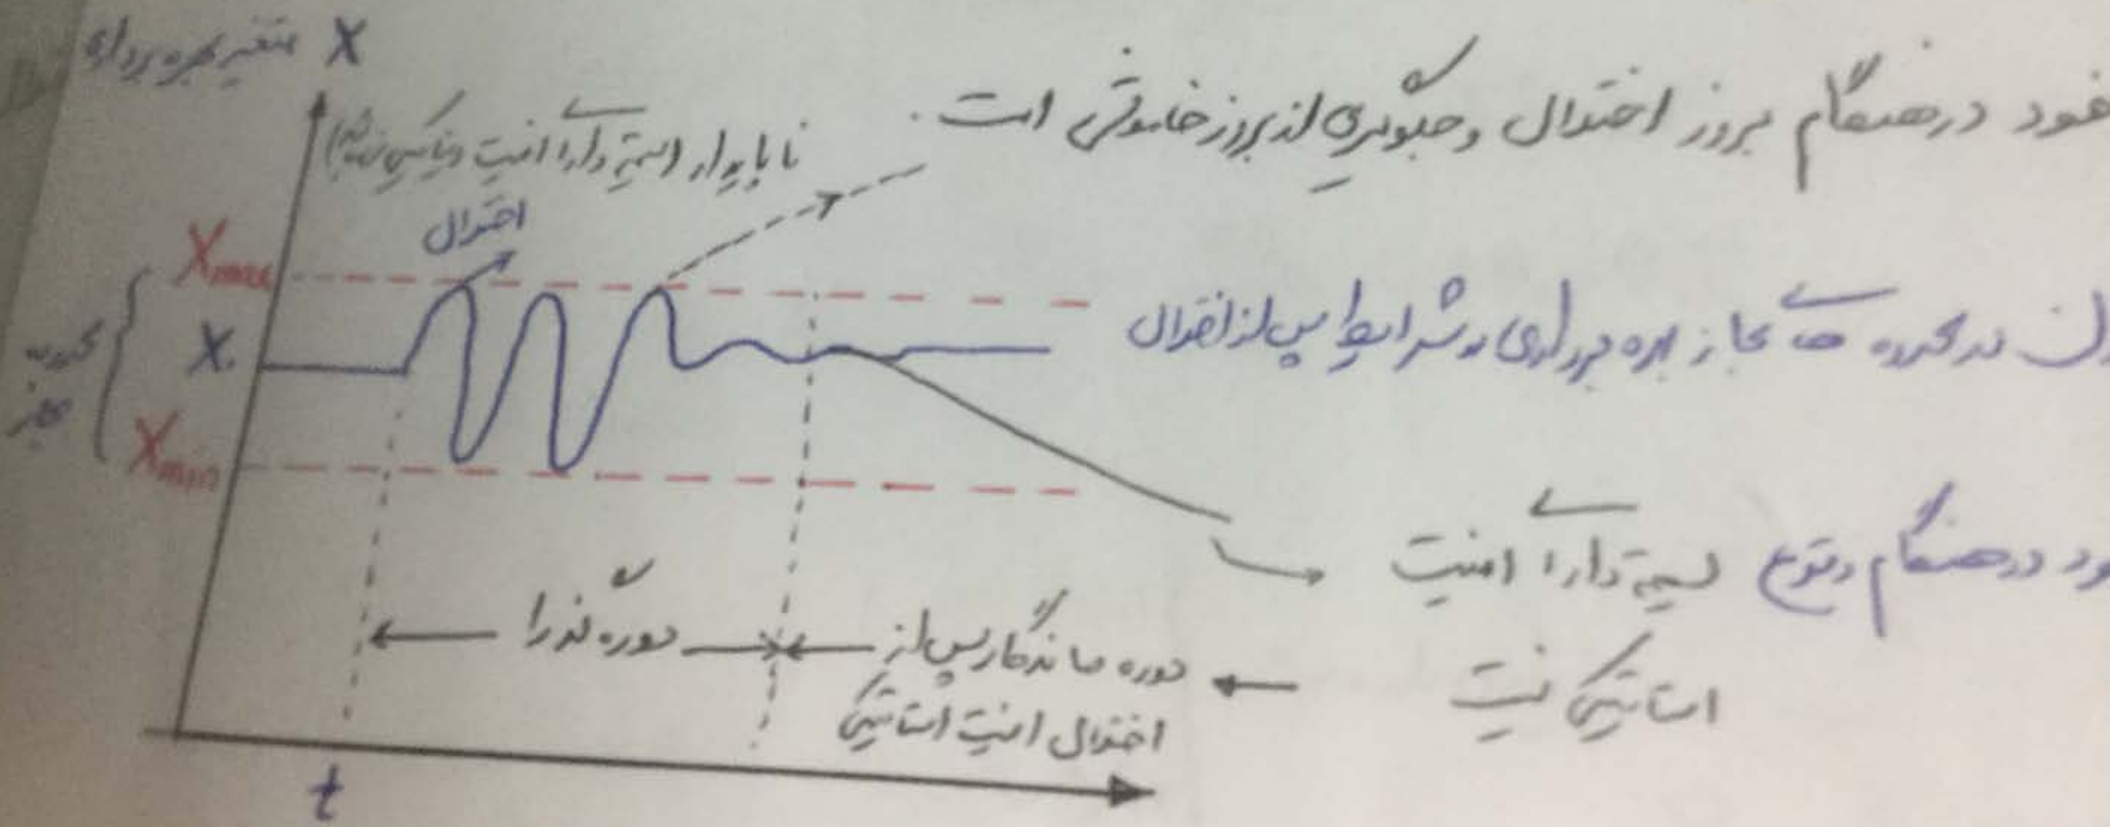 متغیر بهره برداری X
خود در هنگام بروز اختلال و جلوگیری از بروز خاموشی است.
ناپایدار (سیستم دارای امنیت دینامیکی نیست)
اختلال
Xmax
در محدوده های مجاز بهره برداری در شرایط پس از اختلال
محدوده مجاز
X.
Xmin
در هنگام وقوع
سیستم دارای امنیت
استاتیکی نیست
دوره گذرا
دوره ماندگار پس از
اختلال امنیت استاتیکی
t